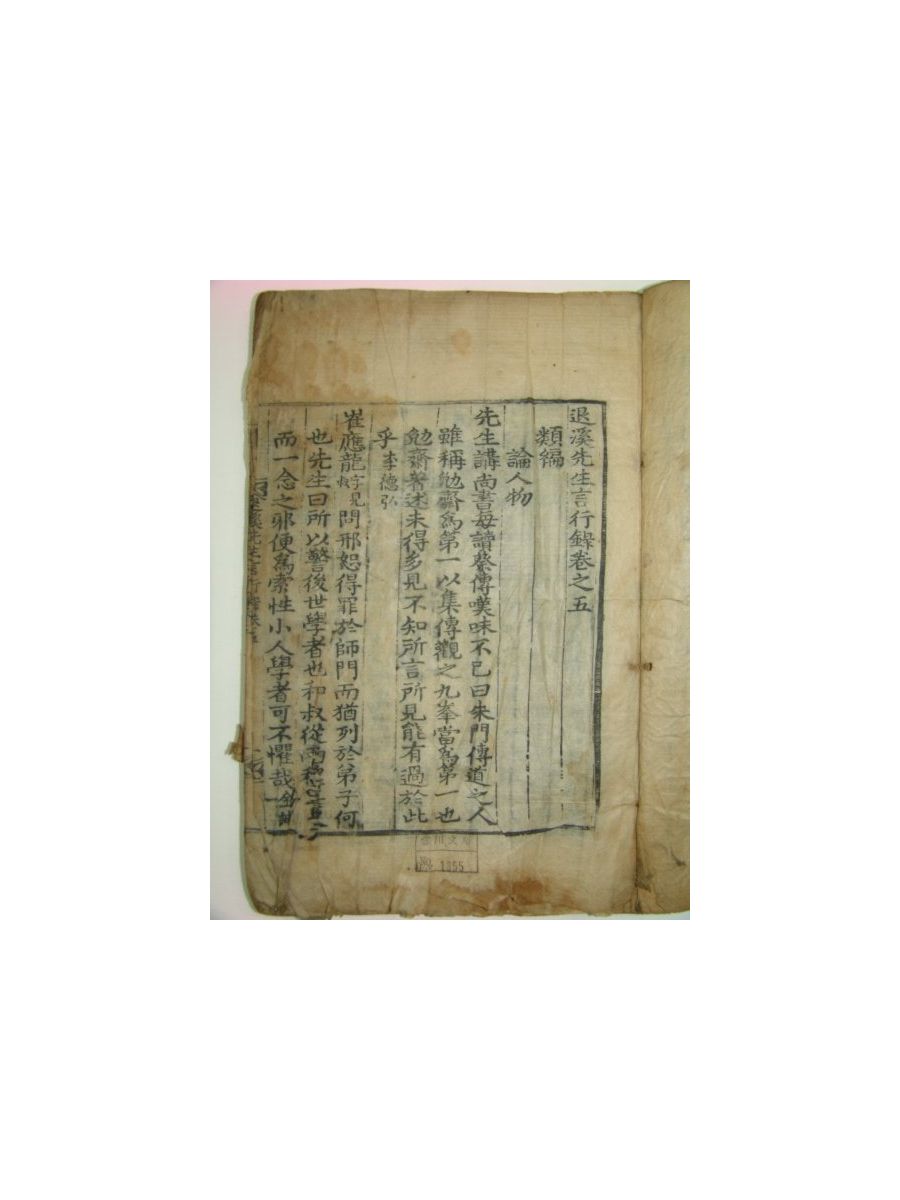 退溪先生言行錄卷之五
類編
論人物
先生講尚書每讀蔡傳嘆味不已曰朱門傳道之人
雖稱勉齋爲第一以集傳觀之九峯當爲第一也
勉齋著述未得多見不知所言所見能有過於此
乎李德弘
崔應龍字見叔問邢恕得罪於師門而猶列於弟子何
也先生曰所以警後世學者也和叔從兩
而一念之邪便爲索性小人學者可不懼哉金
1355